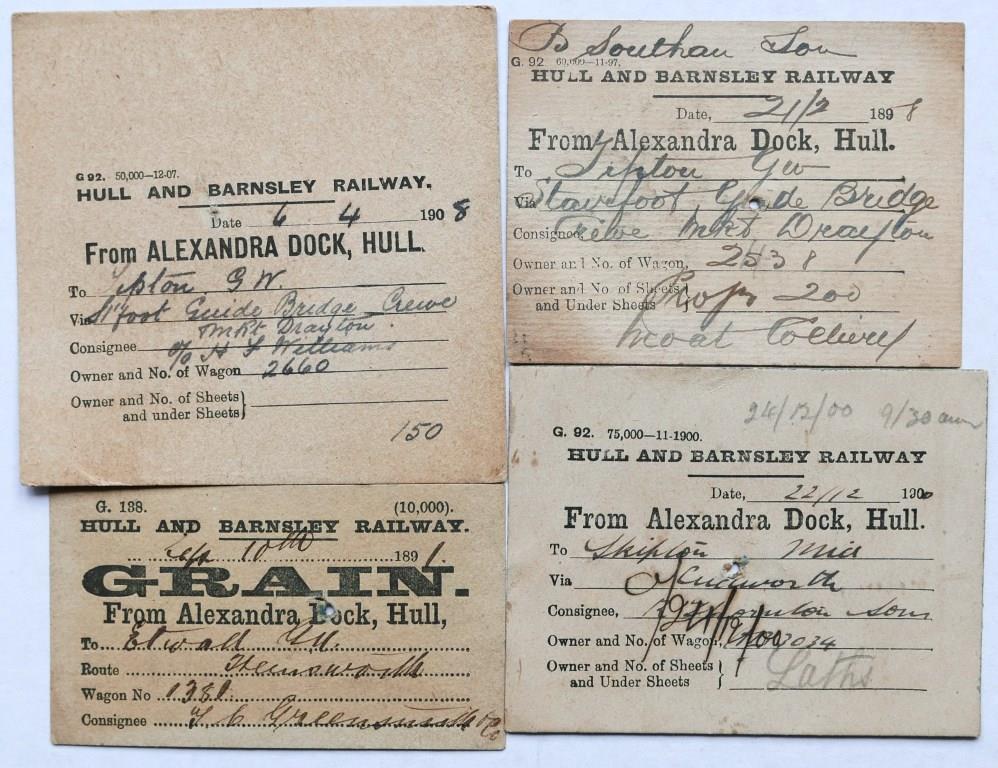 G 92. 50,000—12-07.
HULL AND BARNSLEY RAILWAY.
Date 6 4 1908
From ALEXANDRA DOCK, HULL.
To Tipton G.W.
Via S'foot Guide Bridge Crewe
Mkt Drayton.
Consignee o/o H S Williams
Owner and No. of Wagon 2660
Owner and No. of Sheets
and under Sheets
150
B Southan Son
G. 92 60,000—11-97.
HULL AND BARNSLEY RAILWAY
Date, 21/2 1898
From Alexandra Dock, Hull.
To Tipton GW
Via Stairfoot Guide Bridge
Consignee, Crewe Mkt Drayton
Owner and No. of Wagon, 2538
Owner and No. of Sheets
and Under Sheets Props 200
Moat Colliery
G. 138. (10,000).
HULL AND BARNSLEY RAILWAY.
Sep 10th 1891.
GRAIN.
From Alexandra Dock, Hull,
To Etwall GN.
Route Hemsworth
Wagon No 1380
Consignee T C Greensmith & Co
24/12/00 9/30 am
G. 92. 75,000—11-1900.
HULL AND BARNSLEY RAILWAY
Date, 22/12 1900
From Alexandra Dock, Hull.
To Skipton Mid
Via Cudworth
Consignee, Thornton Sons
Owner and No. of Wagon,
Owner and No. of Sheets
and Under Sheets
Laths